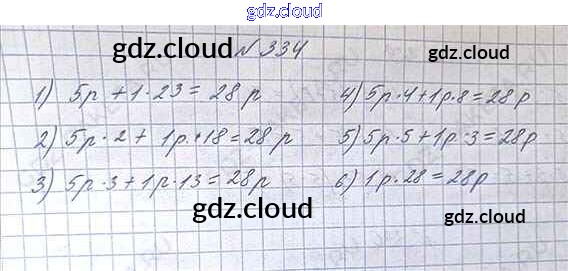 gdz.cloud
gdz.cloud №334 gdz.cloud
1) 5р + 1 · 23 = 28 р
4) 5р · 4 + 1р · 8 = 28 р
2) 5р · 2 + 1р · 18 = 28 р
5) 5р · 5 + 1р · 3 = 28р
3) 5р · 3 + 1р · 13 = 28р
6) 1р · 28 = 28р
gdz.cloud
gdz.cloud